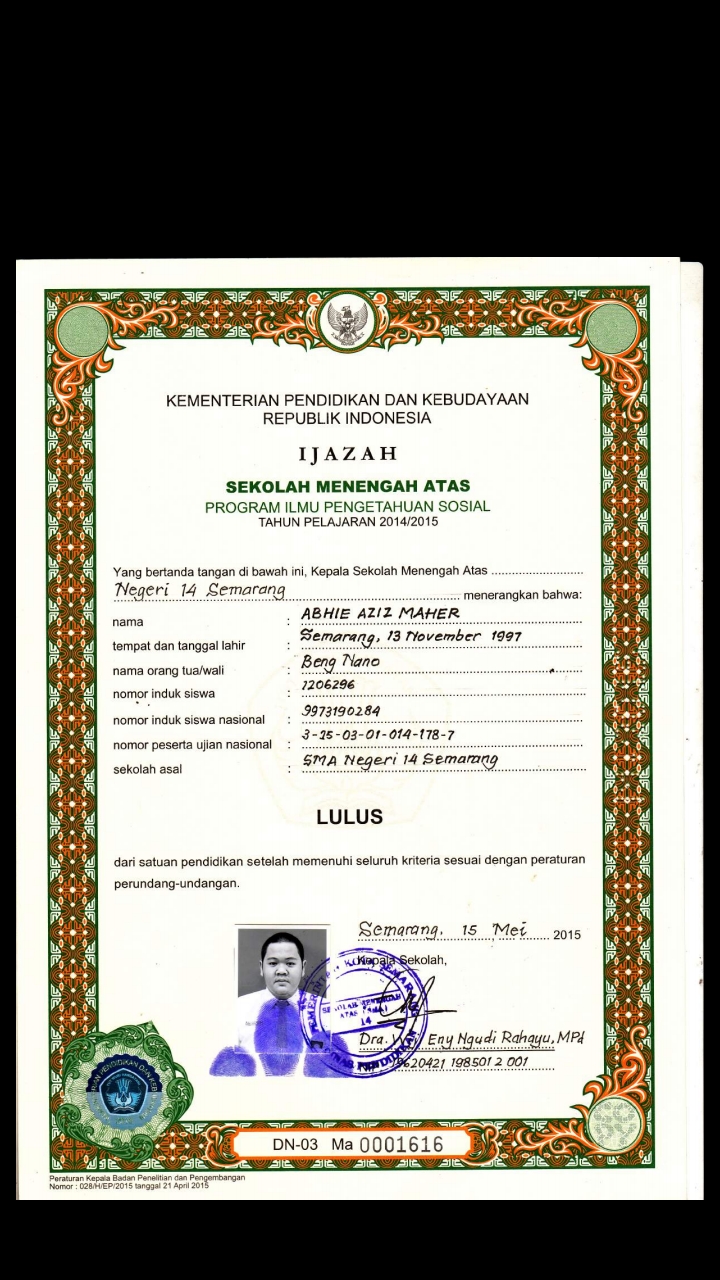 KEMENTERIAN PENDIDIKAN DAN KEBUDAYAAN
REPUBLIK INDONESIA
IJAZAH
SEKOLAH MENENGAH ATAS
PROGRAM ILMU PENGETAHUAN SOSIAL
TAHUN PELAJARAN 2014/2015
Yang bertanda tangan di bawah ini, Kepala Sekolah Menengah Atas
Negeri 14 Semarang menerangkan bahwa:
nama : ABHIE AZIZ MAHER
tempat dan tanggal lahir : Semarang, 13 November 1997
nama orang tua/wali : Beng Nano
nomor induk siswa : 1206296
nomor induk siswa nasional : 9973190284
nomor peserta ujian nasional : 3-15-03-01-014-178-7
sekolah asal : SMA Negeri 14 Semarang
LULUS
dari satuan pendidikan setelah memenuhi seluruh kriteria sesuai dengan peraturan
perundang-undangan.
Semarang, 15 Mei 2015
Kepala Sekolah,
SEKOLAH MENENGAH
ATAS
14
Dra. Eny Ngudi Rahayu, MPd
19620421 198501 2 001
DN-03 Ma 0001616
Peraturan Kepala Badan Penelitian dan Pengembangan
Nomor : 028/H/EP/2015 tanggal 21 April 2015